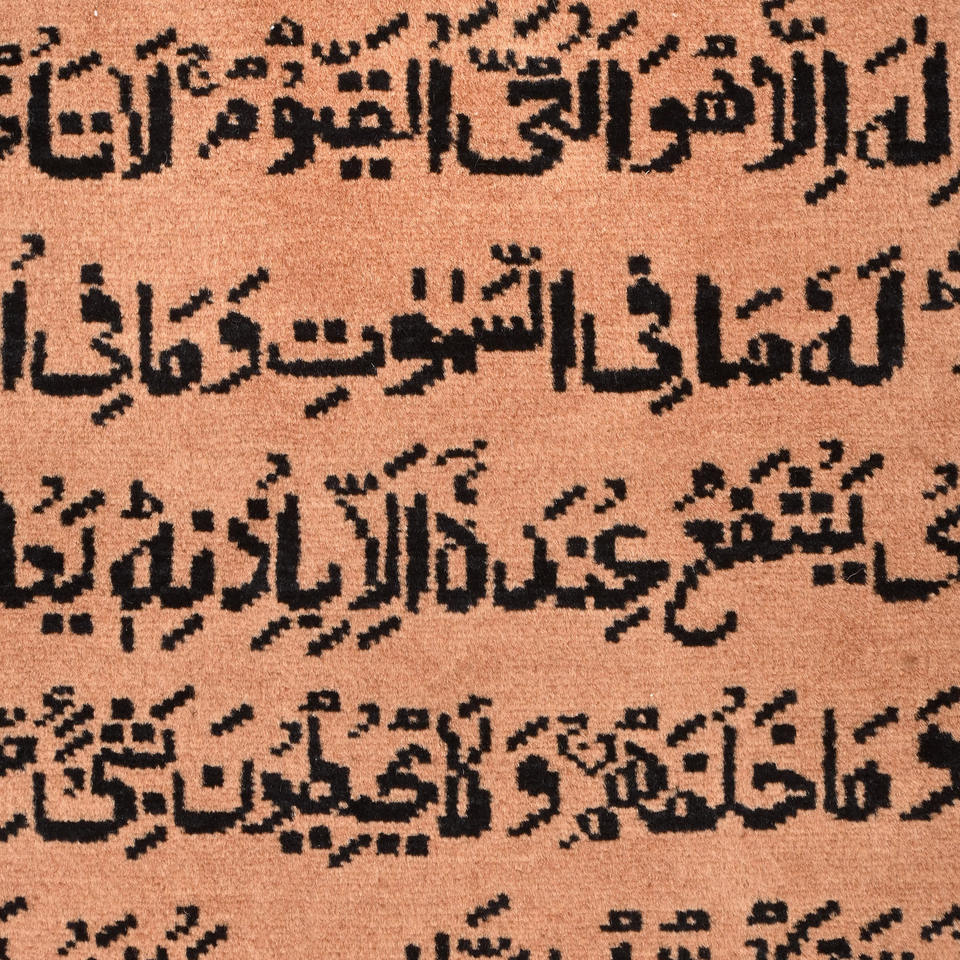 لَهَ اِلَّا هُوَ اَلْحَىُّ الْقَيُّومُ لَا تَأْ
لَهُ مَا فِى السَّمٰوٰتِ وَمَا فِى ا
يَشْفَعُ عِنْدَهُ اِلَّا بِاِذْنِهٖ يَعْلَ
وَمَا خَلْفَهُمْ وَلَا يُحِيطُونَ بِشَىْ